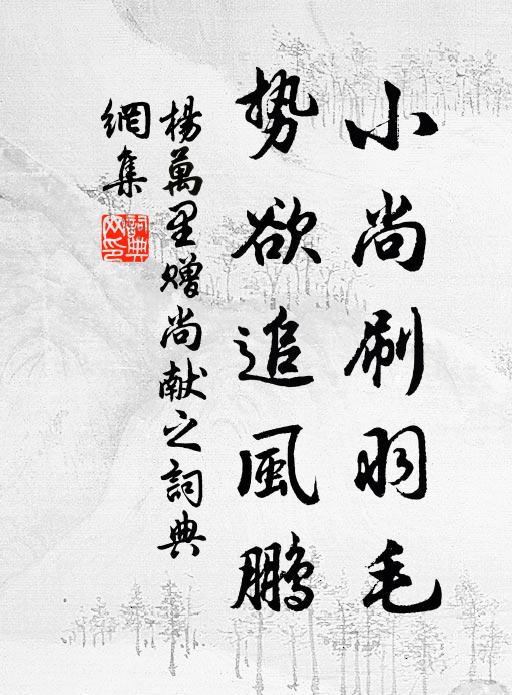 小尚刷羽毛
势欲追風鹏
楊萬里赠尚献之詞典
網集
詞典
网印